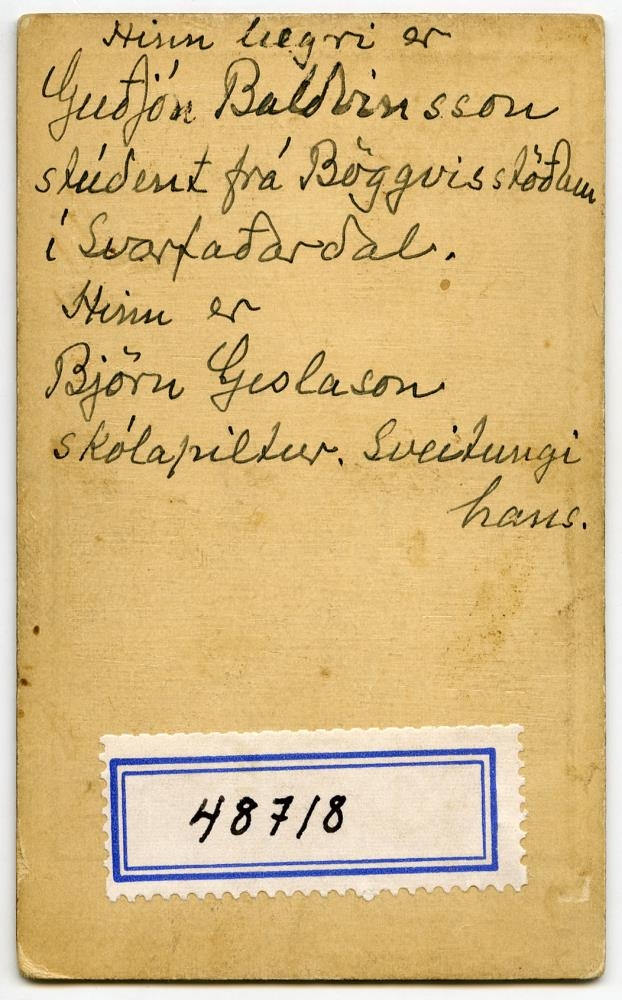 Hinn hægri er
Guðjón Baldvinsson
stúdent frá Böggvisstöðum
í Svarfaðardal.
Hinn er
Björn Gíslason
skólapiltur. Sveitungi
hans.
48718